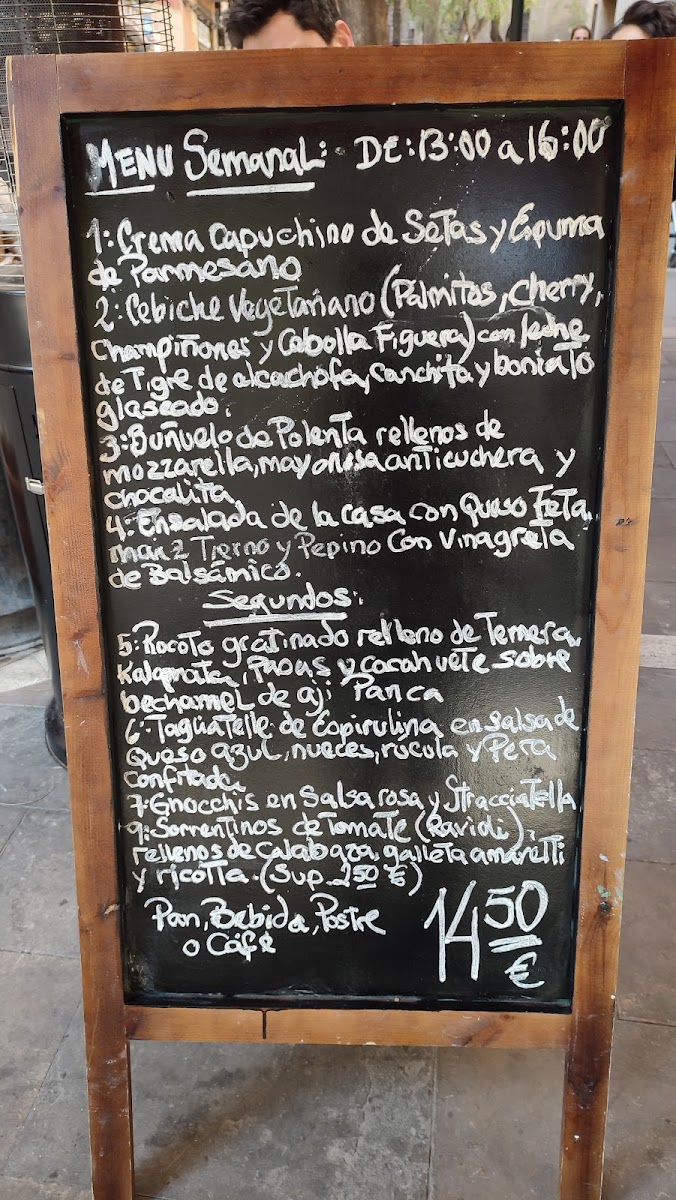 MENU Semanal: DE: 13:00 a 16:00
1: Crema Capuchino de Setas y Espuma
de Parmesano
2: Cebiche Vegetariano (Palmitos, cherry,
Champiñones y Cebolla Figuera) con leche
de Tigre de alcachofa, Canchita y boniato
glaseado.
3: Buñuelo de Polenta rellenos de
mozzarella, mayonesa anticuchera y
chocalita
4: Ensalada de la casa con Queso Feta,
maiz Tierno y Pepino Con Vinagreta
de Balsámico.
Segundos:
5: Rocoto gratinado relleno de Ternera,
Kalamata, Papas y cacahuete sobre
bechamel de aji Panca
6: Tagliatelle de Espirulina en salsa de
Queso azul, nueces, rucola y Pera
confitada
7: Gnocchis en Salsa rosa y Stracciatella
9: Sorrentinos de Tomate (Ravioli),
rellenos de Calabaza, galleta amaretti
y ricotta. (Sup. 2'50 €)
Pan, Bebida, Postre
o Café
14'50
€